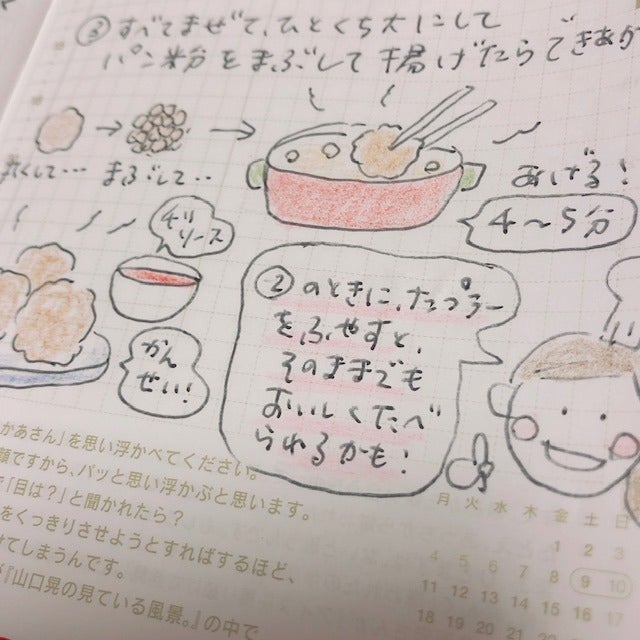 ③ すべてまぜて、ひとくち大にして
パン粉をまぶして揚げたらできあが
丸くして…
まぶして‥
あげる!
4〜5分
チリ
ソース
かん
せい!
②のときに、
をふやすと、
そのままでも
おいしくたべ
られるかも!
かあさん」を思い浮かべてください。
顔ですから、パッと思い浮かぶと思います。
「目は?」と聞かれたら?
をくっきりさせようとすればするほど、
てしまうんです。
『山口晃の見ている風景。』の中で
月 火 水 木 金 土 日
1 2 3
4 5 6 7 8 9 10
11 12 13 14 15 16 17
18 19 20 21 22 23